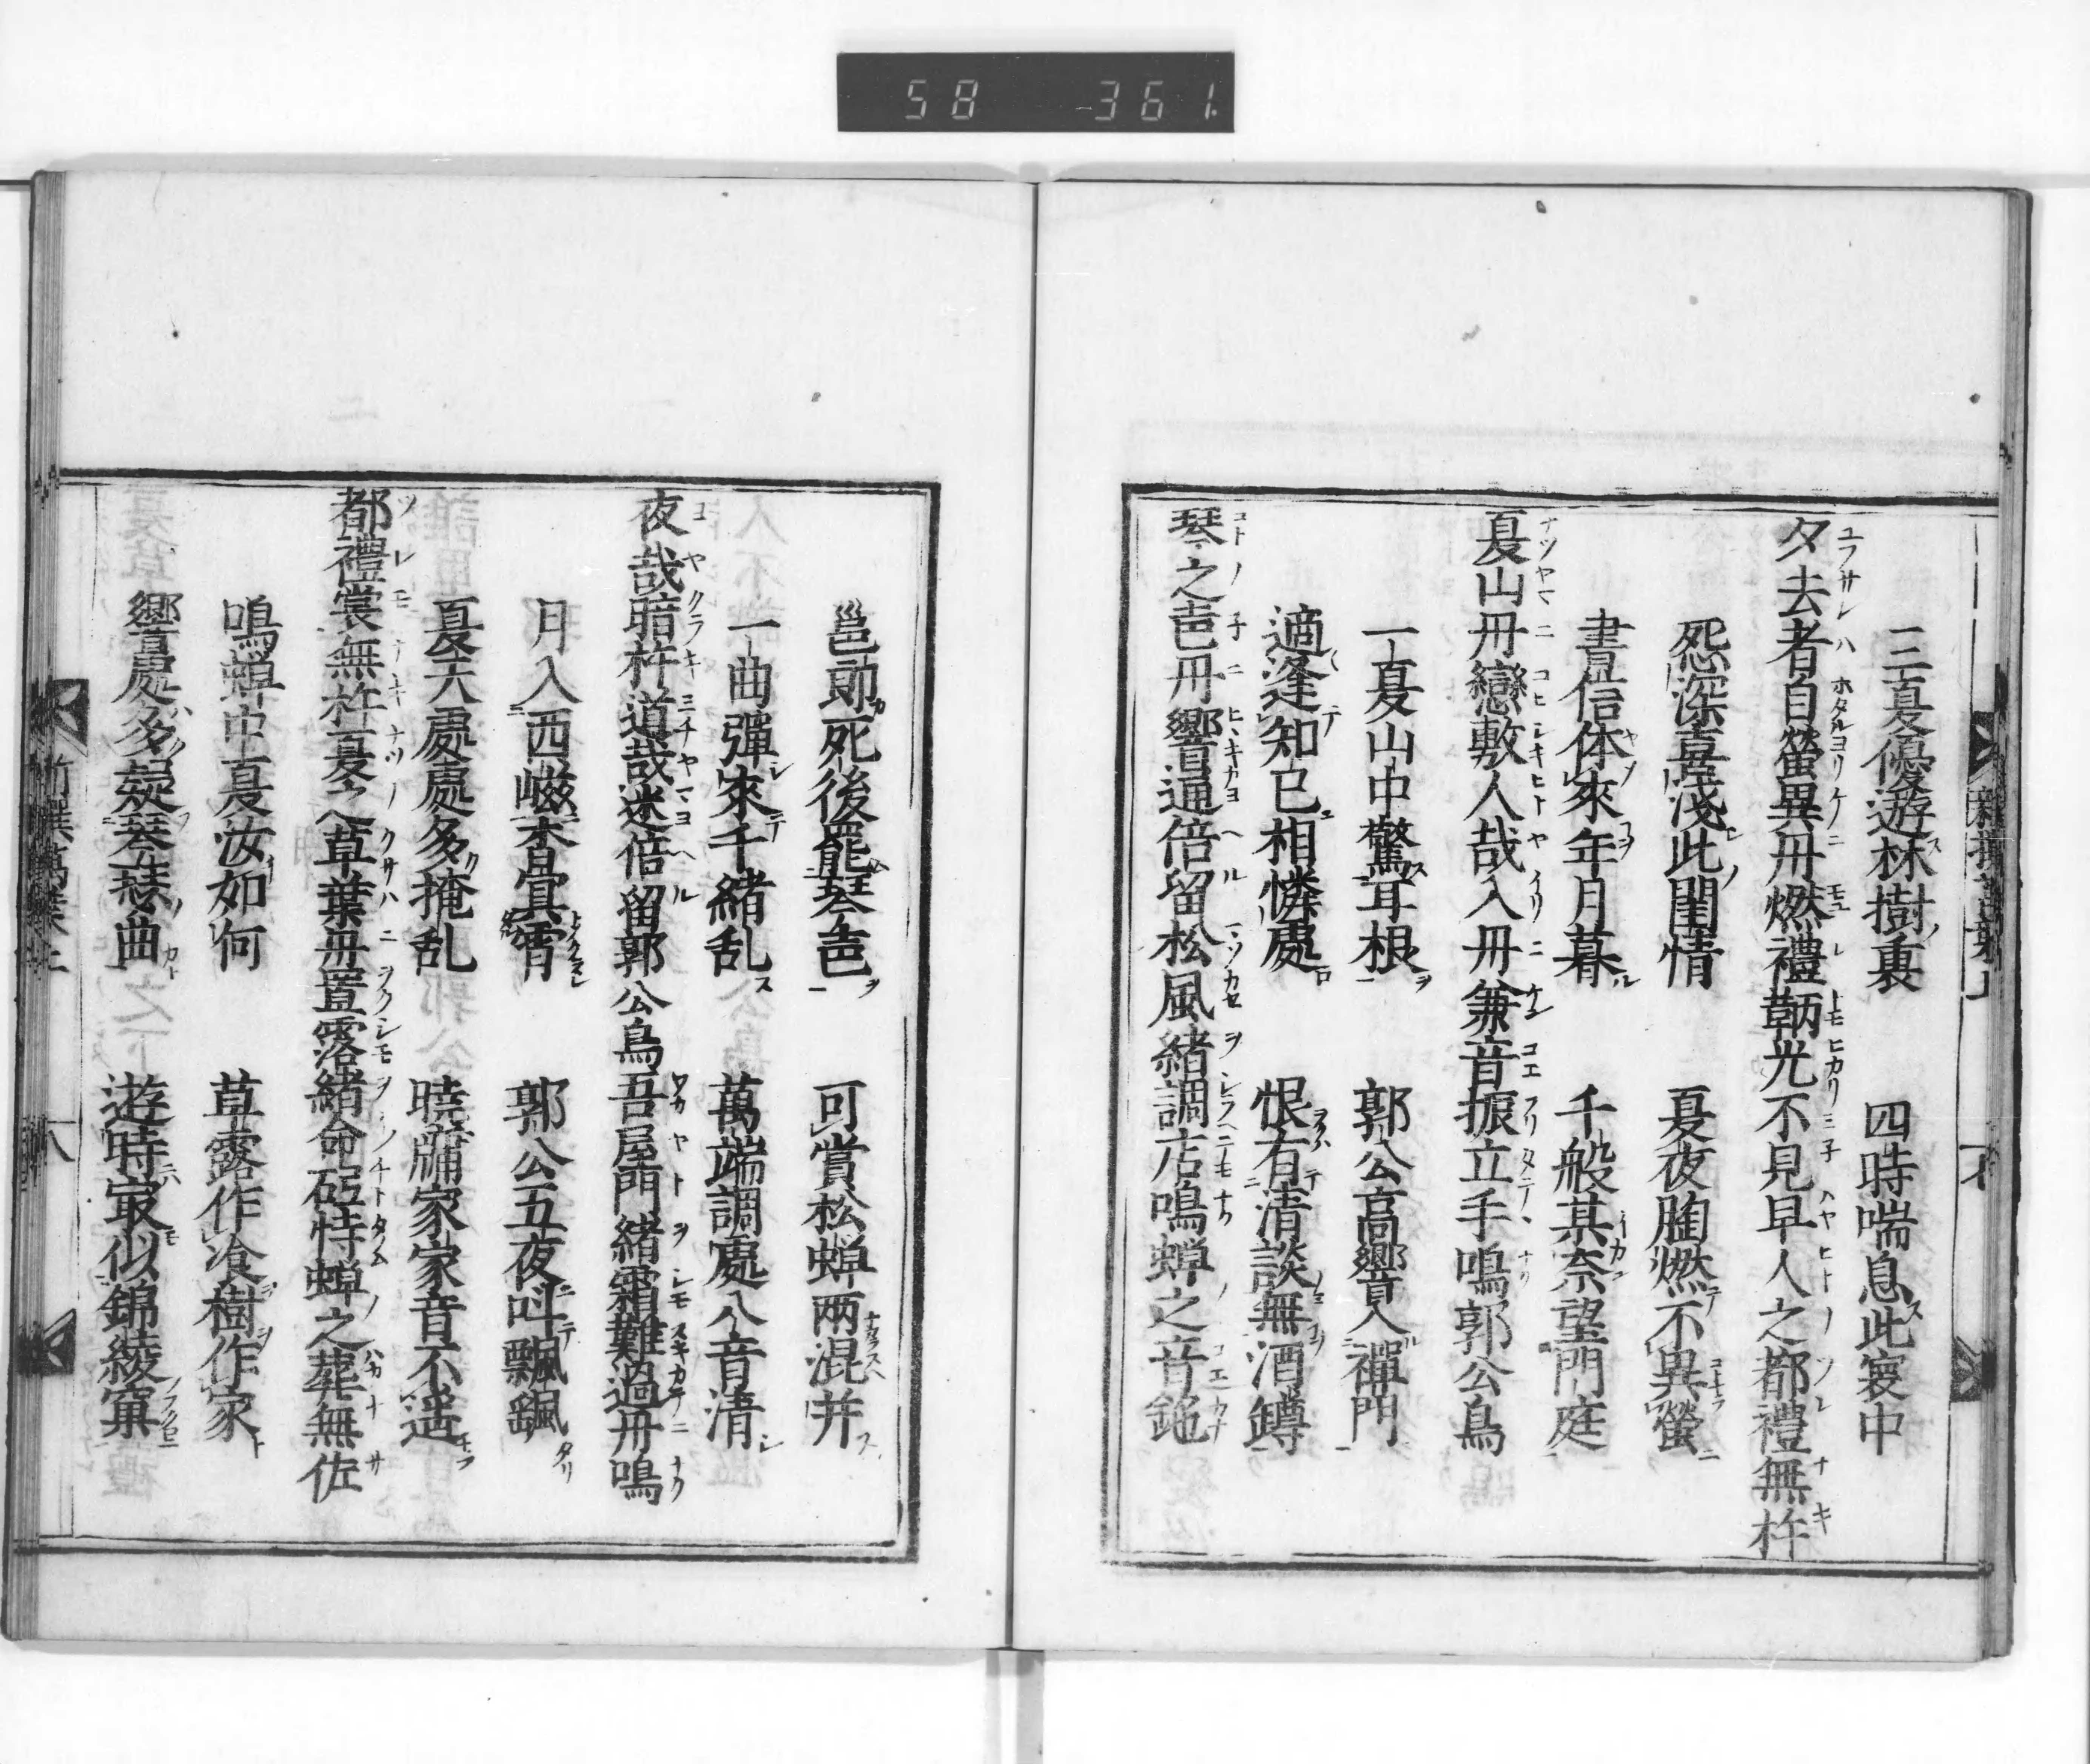 58 -361.
三夏優遊林樹裏 四時喘息此寰中
夕去者自螢異丹燃禮鞆光不見早人之都禮無杵
怨深喜淺此閨情 夏夜胸燃不異螢
書信休來年月暮 千般其奈望門庭
夏山丹戀敷人哉入丹兼音振立手鳴郭公鳥
一夏山中驚耳根 郭公高響入禪門
適逢知己相憐處 恨有清談無酒罇
琴之声丹響通倍留松風緒調店鳴蝉之音鉇
邕郎死後罷琴色 可賞松蝉兩混并
一曲彈來千緒乱 萬端調處八音清
夜哉暗杵道哉迷倍留郭公鳥吾屋門緒霜難過丹鳴
月入西嵫杳冥霄 郭公五夜叫飄䬟
夏天處處多掩乱 曉牖家家音不遥
都禮裳無杵夏之草葉丹置露緒命砥恃蝉之葬無佐
鳴蝉中夏汝如何 草露作飡樹作家
響處多疑琴瑟曲 遊時最似錦綾窠
新撰萬葉上 八